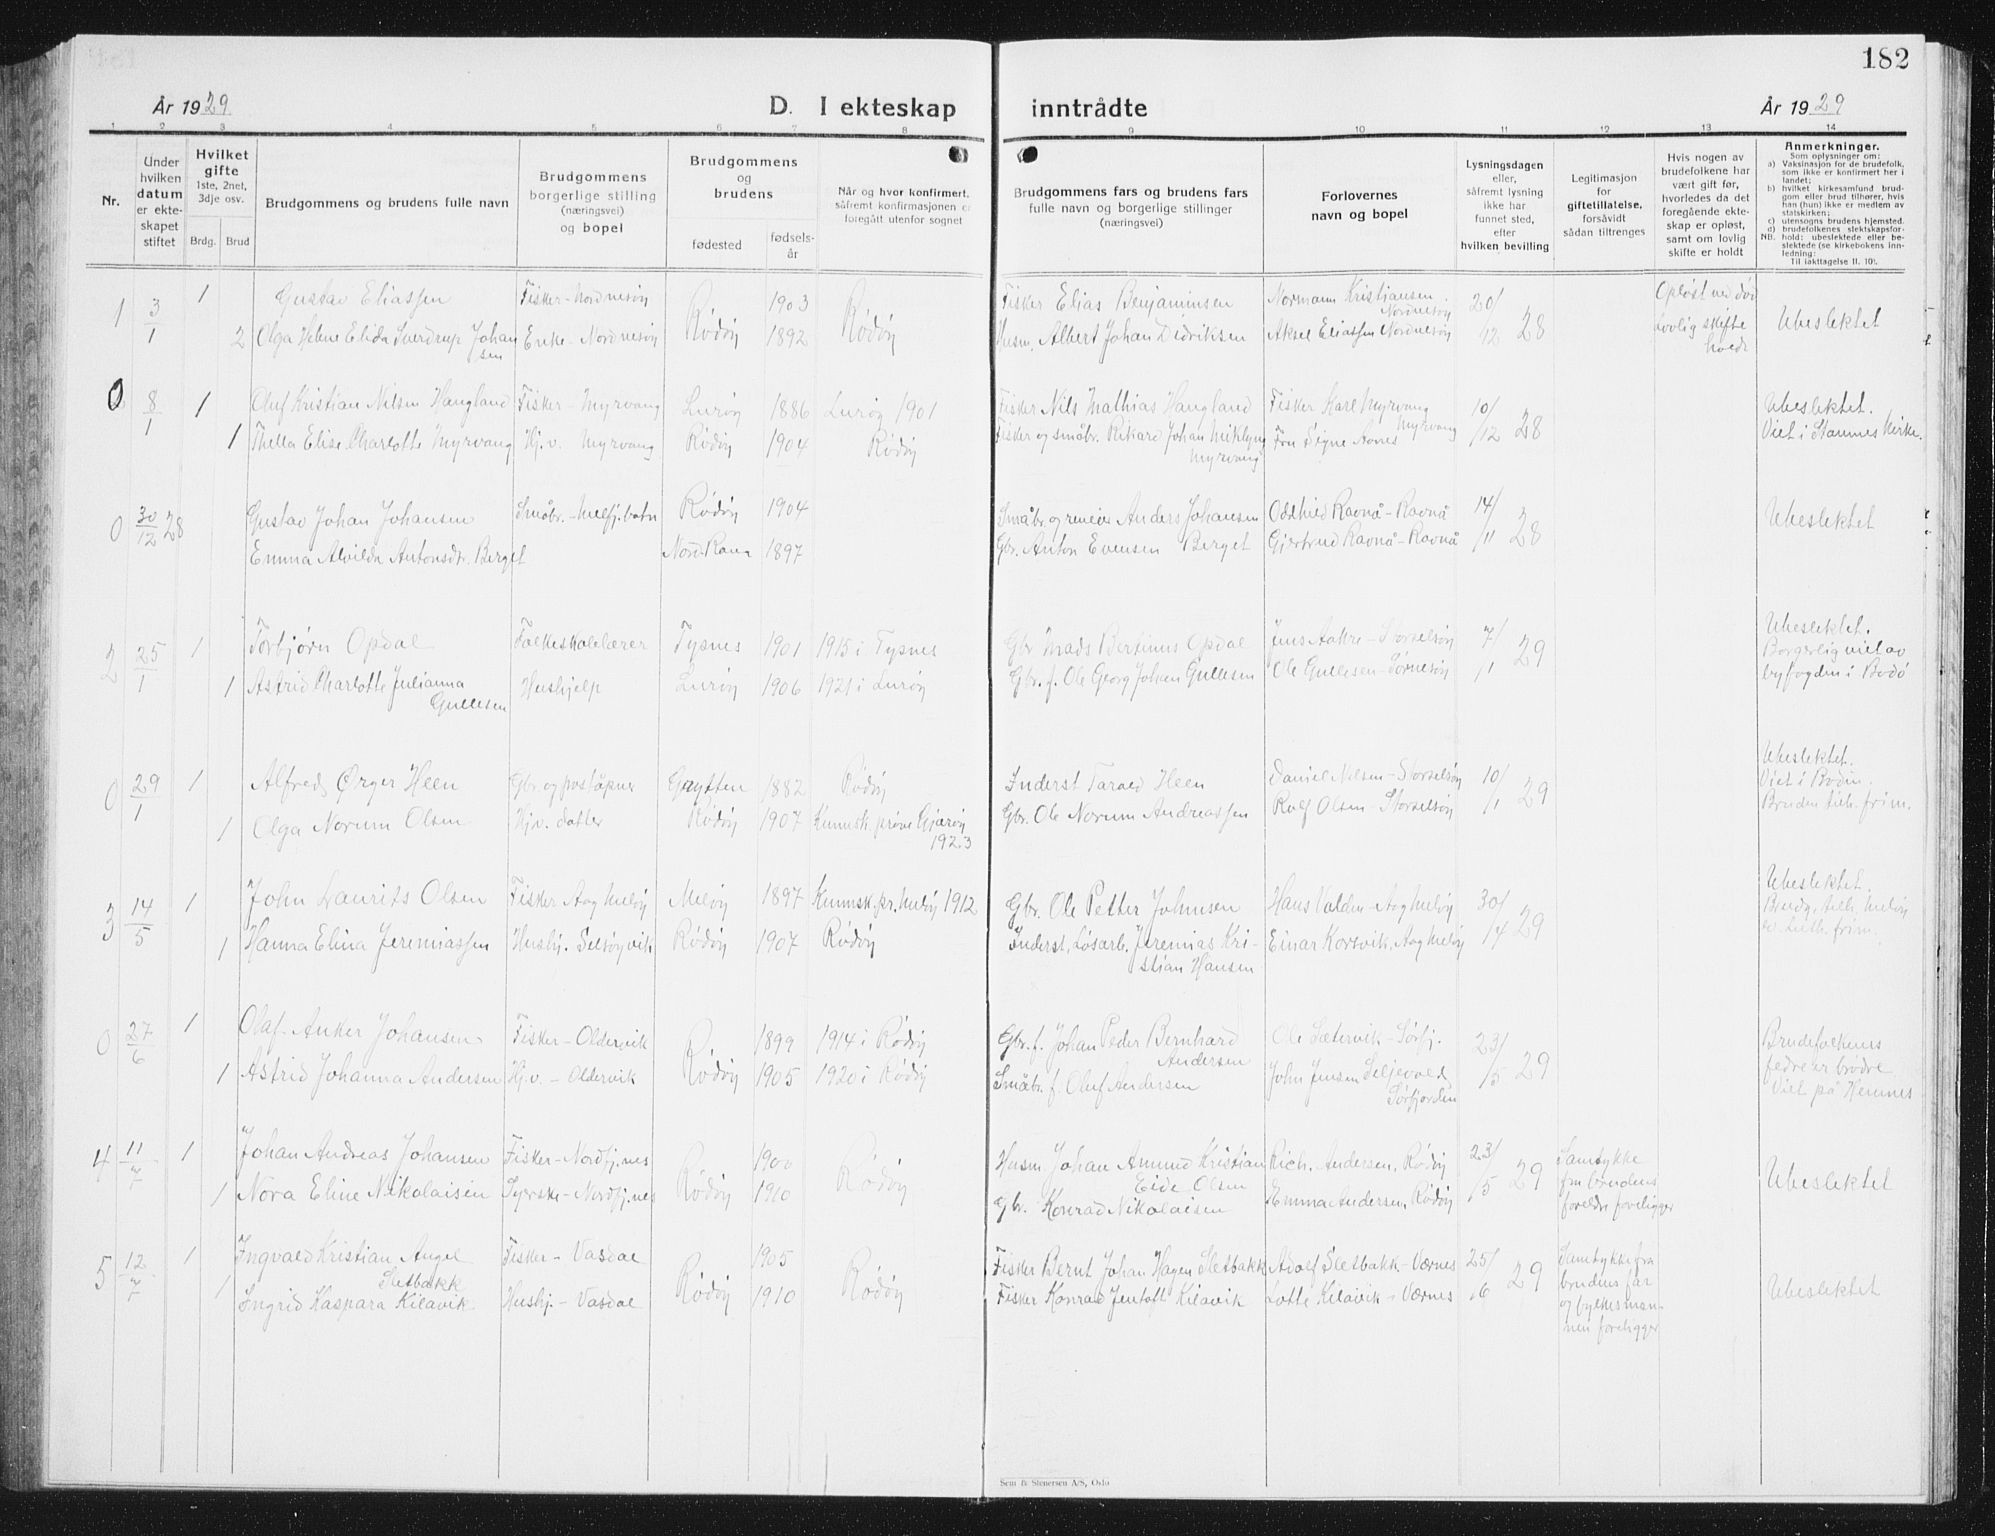 182
År 1929
D. I ekteskap inntrådte
År 1929
1 2 3 4 5 6 7 8 9 10 11 12 13 14
Nr.
Under hvilken datum er ekteskapet stiftet
Hvilket gifte
1ste, 2net, 3dje osv.
Brdg. Brud
Brudgommens og brudens fulle navn
Brudgommens borgerlige stilling (næringsvei) og bopel
Brudgommens og brudens
fødested
fødselsår
Når og hvor konfirmert,
såfremt konfirmasjonen er
foregått utenfor sognet
Brudgommens fars og brudens fars
fulle navn og borgerlige stillinger
(næringsvei)
Forlovernes
navn og bopel
Lysningsdagen
eller,
såfremt lysning
ikke har
funnet sted,
efter
hvilken bevilling
Legitimasjon
for
giftetillatelse,
forsåvidt
sådan tiltrenges
Hvis nogen av
brudefolkene har
vært gift før,
hvorledes da det
foregående ekte-
skap er opløst,
samt om lovlig
skifte er holdt
Anmerkninger.
Som oplysninger om:
a) Vaksinasjon for de brudefolk,
som ikke er konfirmert her i
landet;
b) hvilket kirkesamfund brud-
gom eller brud tilhører, hvis
han (hun) ikke er medlem av
statskirken;
c) utensogns brudens hjemsted.
d) brudefolkenes slektskapsfor-
NB. hold: ubeslektede eller be-
slektede (se kirkebokens inn-
ledning:
Til iakttagelse II. 10).
1 3/1 1 Gustav Eliassen Fisker - Nordnesøy Rødøy 1903 Rødøy Fisker Elias Benjaminsen Normann Kristiansen Nordnesøy 20/12 28 Opløst ved død Ubeslektet
2 Olga Helene Elida Sverdrup Johansen Enke - Nordnesøy 1892 Husm. Albert Johan Didriksen Aksel Eliassen Nordnesøy Lovlig skifte holdt
0 8/1 1 Oluf Kristian Nilsen Haugland Fisker - Myrvang Lurøy 1886 Lurøy 1901 Fisker Nils Mathias Haugland Fisker Karl Myrvang Myrvang 10/12 28 Ubeslektet.
1 Thella Elise Charlotte Myrvang Hj.v. Myrvang Rødøy 1904 Rødøy Fisker og småbr. Rikard Johan Myrvang Fru Signe Aanes Viet i Stamnes Kirke.
0 30/12 28 Gustav Johan Johansen Småbr. - Melfj.botn Rødøy 1904 Småbr. og Anders Johansen Oddhild Ravnå - Ravnå 14/11 28 Ubeslektet
Emma Alvilda Antonsdt. Berget Nord Rana 1897 Gbr. Anton Evensen Berget Gjertrud Ravnå - Ravnå
2 25/1 1 Torbjørn Opdal Folkeskolelærer Tysnes 1901 1915 i Tysnes Gbr Mads Bertinus Opdal Jens Aakre - Storselsøy 7/1 29 Ubeslektet.
1 Astrid Charlotte Julianna Gullesen Hushjelp Lurøy 1906 1921 i Lurøy Gbr. f. Ole Georg Johan Gullesen Ole Gullesen - Sørnesøy Borgerlig viet av
byfogden i Bodø
0 29/1 1 Alfred Ørger Heen Gbr. og poståpner Grytten 1882 Rødøy Inderst Tarald Heen Daniel Nilsen - Storselsøy 10/1 29 Ubeslektet.
1 Olga Norum Olsen Hjv. datter Rødøy 1907 Kunnsk. prøve Gjærøy 1923 Gbr. Ole Norum Andreassen Rolf Olsen - Storselsøy Viet i Bodin.
Bruden tilh. frim.
3 14/5 1 John Laurits Olsen Fisker Aag Meløy Meløy 1897 Kunnsk. pr. Meløy 1912 Gbr. Ole Petter Johnsen Hans Valden - Aag Meløy 30/4 29 Ubeslektet.
1 Hanna Elina Jeremiassen Hushj. Selsøyvik Rødøy 1907 Rødøy Inderst, Løsarb. Jeremias Kristian Hansen Einar Korsvik, Aag Meløy Brudg. tilh. Meløy
tilh. frim.
0 27/6 1 Olaf Anker Johansen Fisker - Oldervik Rødøy 1899 1914 i Rødøy Gbr. f. Johan Peder Bernhard Andersen Ole Sætervik - Sørfj. 23/5 29 Brudefolkenes
1 Astrid Johanna Andersen Hj.v. - Oldervik 1905 1920 i Rødøy Småbr. f. Oluf Andersen John Jensen Seljevold Sørfjorden fedre er brødre
Viet på Hemnes
4 11/7 1 Johan Andreas Johansen Fisker - Nordfj.nes Rødøy 1900 Rødøy Husm. Johan Amund Kristian Eide Olsen Rich. Andersen, Rødøy 23/5 29 Samtykke Ubeslektet
1 Nora Eline Nikolaisen Syerske - Nordfj.nes 1910 Gbr. Konrad Nikolaisen Emma Andersen, Rødøy fra brudens
foreldre foreligger
5 12/7 1 Ingvald Kristian Angel Sletbakk Fisker - Vasdal Rødøy 1905 Rødøy Fisker Bernt Johan Hagen Sletbakk Adolf Sletbakk - Værnes 25/6 29 Samtykke fra Ubeslektet
1 Ingrid Kaspara Kilavik Hushj. - Vasdal 1910 Fisker Konrad Jentoft Kilavik Lotte Kilavik - Værnes brudens far
og fylkesman-
nen foreligger
Sem & Stenersen A/S, Oslo